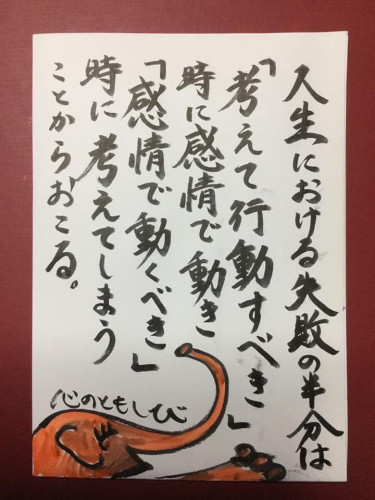 人生における失敗の半分は
「考えて行動すべき」
時に感情で動き
「感情で動くべき」
時に考えてしまう
ことからおこる。
心のともしび